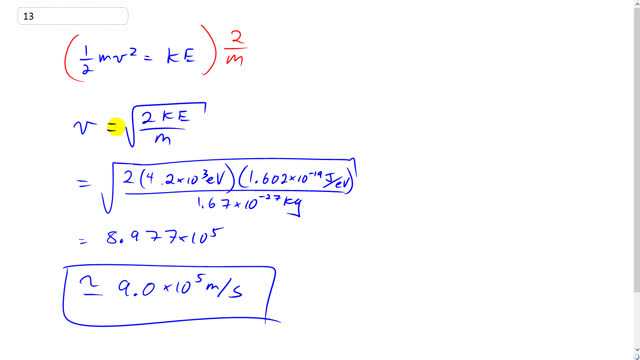 13
(1/2 mv² = KE) 2/m
v = √(2 KE / m)
= √(2 (4.2×10³eV)(1.602×10⁻¹⁹ J/eV) / 1.67×10⁻²⁷kg)
= 8.977×10⁵
≃ 9.0×10⁵ m/s